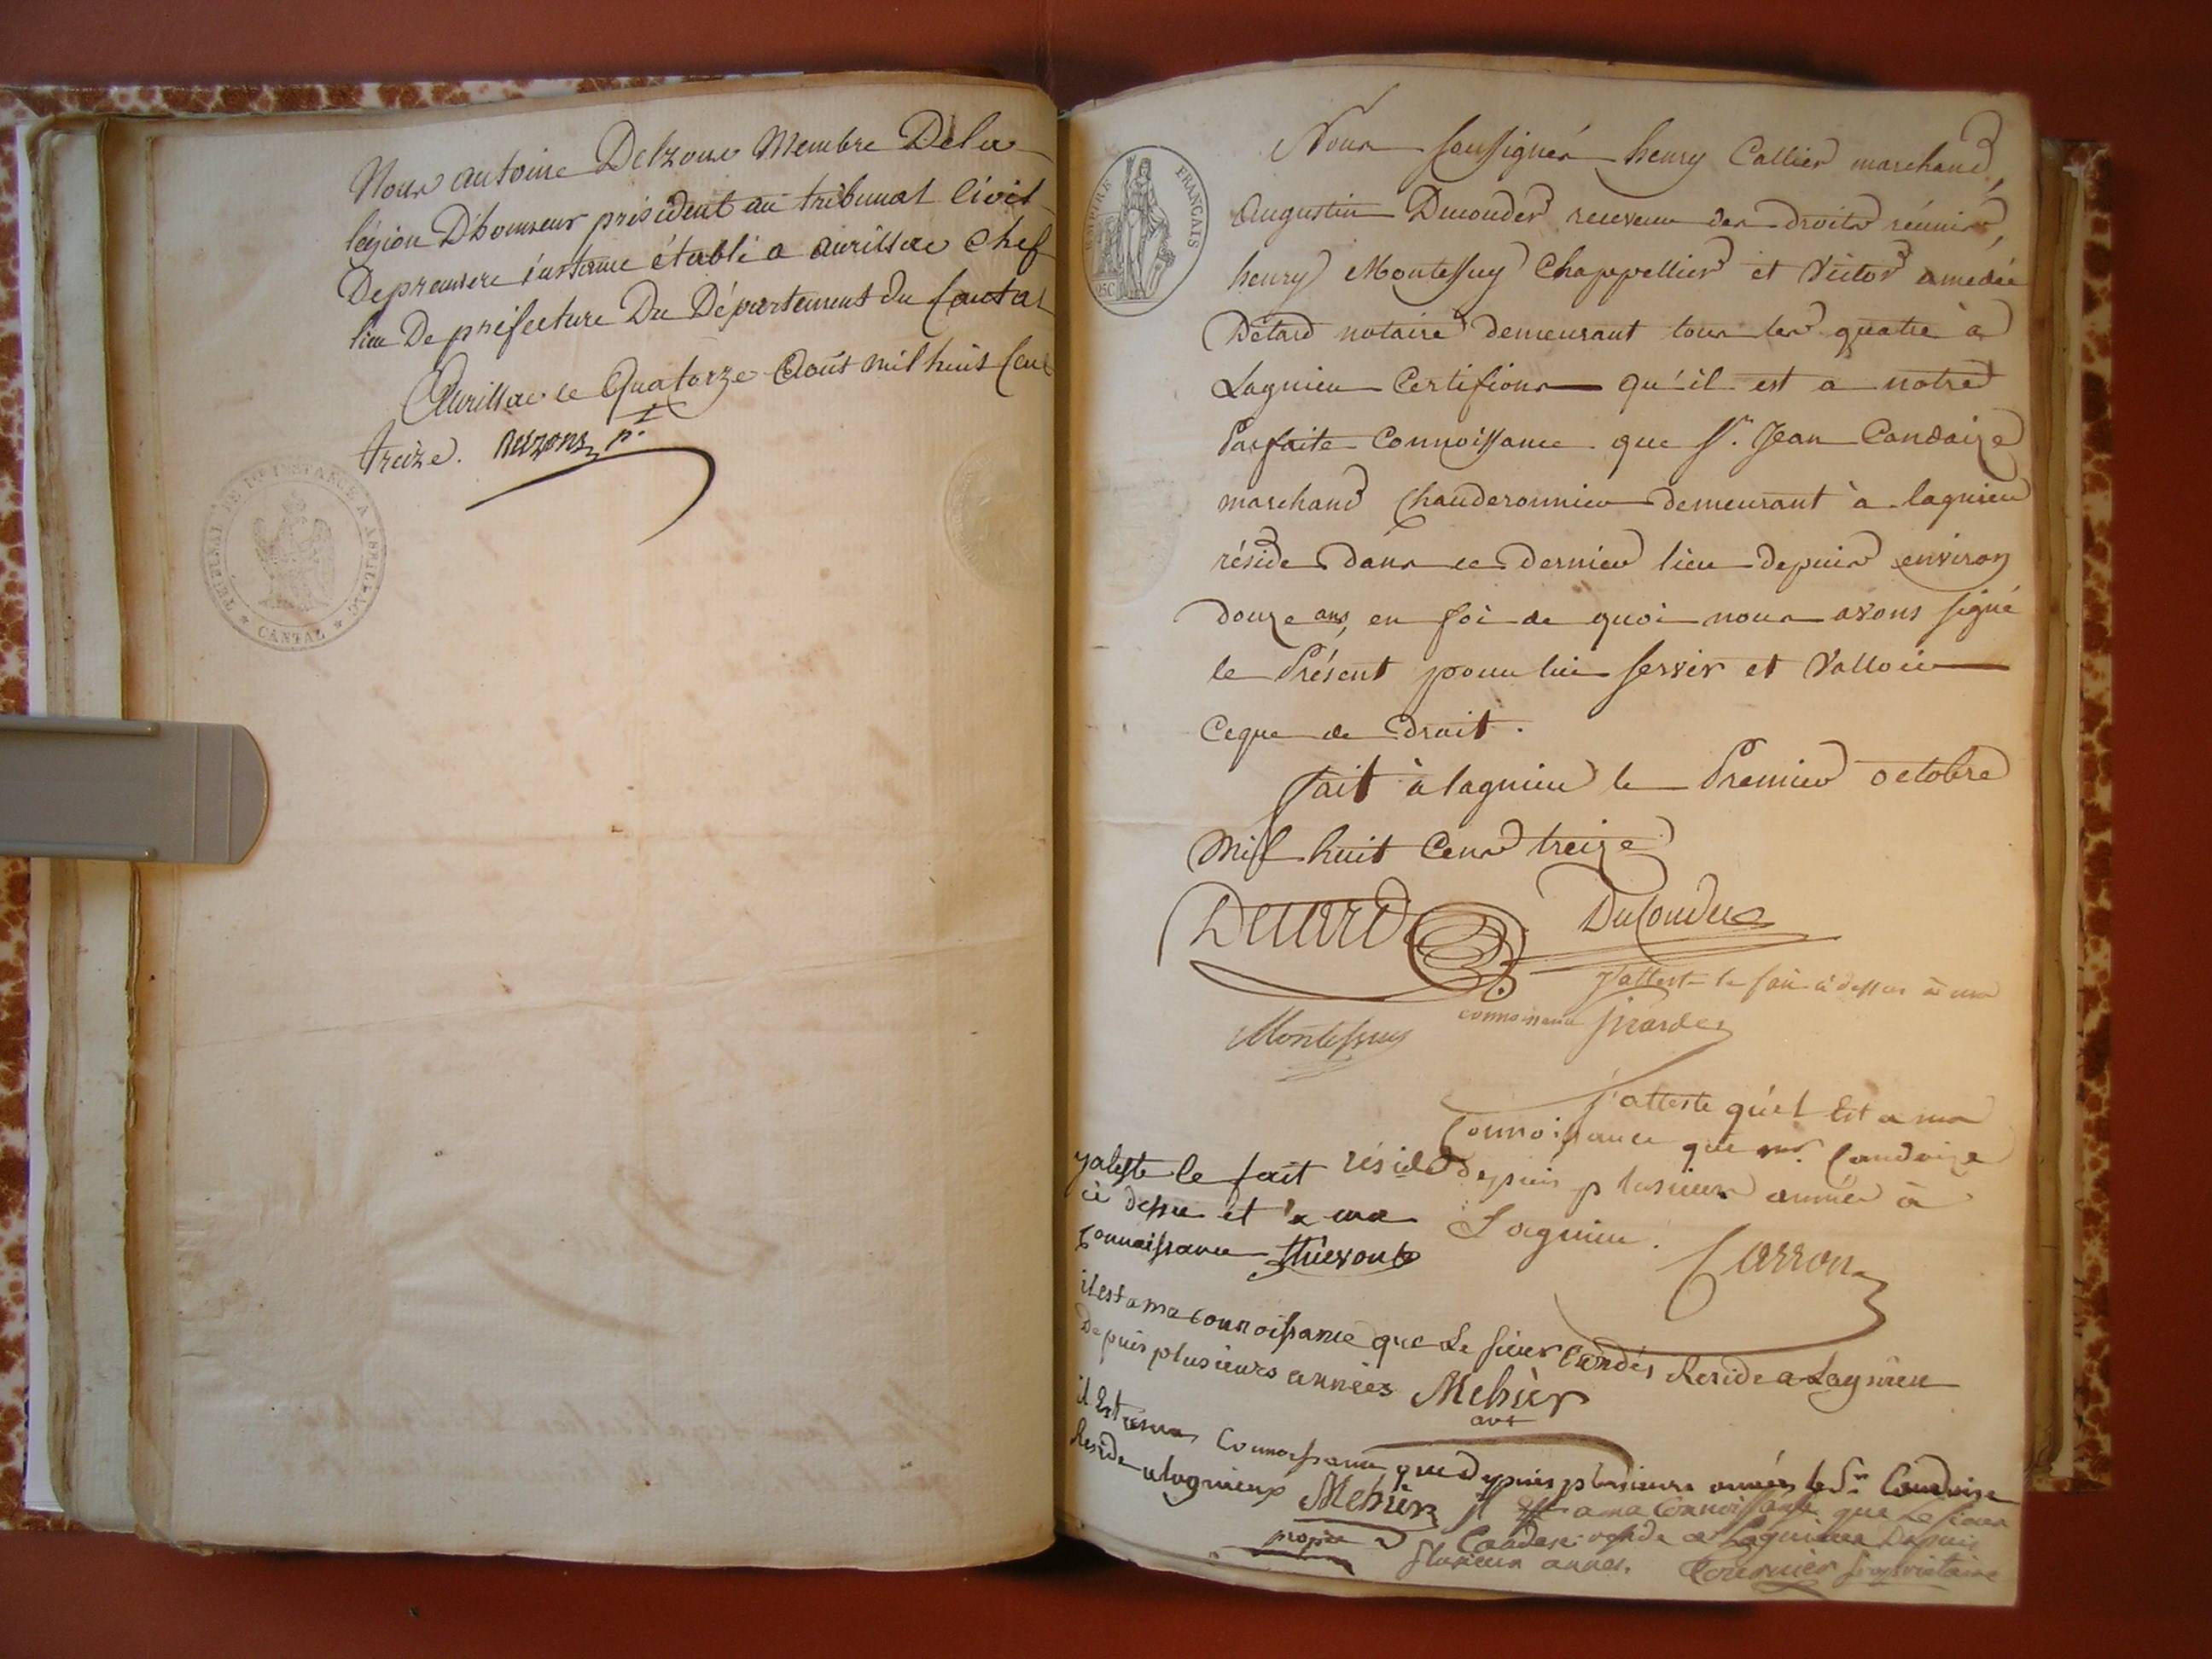 Nous antoine Delzons Membre De la
légion D'honneur président au tribunal Civil
De premiere instance établi a aurillac Chef
lieu De préfecture Du Département du Cantal
Aurillac le Quatorze Août mil huit Cent
treize. Delzons p.t
TRIBUNAL DE 1re INSTANCE A AURILLAC
* CANTAL *
EMPIRE FRANÇAIS
25C
Nous soussignés henry Collier marchand,
Augustin Ducouder receveur des droits réunis,
henry Montessuy Chappellier et Victor amedée
Détard notaire demeurant tous les quatre à
Lagnieu Certifions qu'il est a notre
Parfaite Connoissance que Sr. Jean Candaize
marchand Chauderonnier demeurant à lagnieu
réside dans ce dernier lieu depuis environ
douze ans, en foi de quoi nous avons signé
le Présent pour lui servir et Valloir
Ceque de droit.
fait à lagnieu le Premier octobre
Mil huit Cens treize
Detard Ducouder
j'atteste le fait ci dessus à ma
connoissance
Montessuy
j'atteste qu'el Est a ma
Connoissance que mr. Candaize
réside depuis plusieurs année à
Lagnieu. Carron
yateste le fait
ci dessu et a ma
Connaissance
il est a ma connoissance que Le sieur Candés Reside a Lagnieu
Depuis plusieurs années Mehier
avt
il Est a ma Connoissance que depuis plusieurs années le Sr Candaise
Reside a lagnieux Mehier
propre
il Est a ma Connoissance que Le sieur
Candese reside a Lagnieu Depuis
plusieur annes. Tournier propriétaire